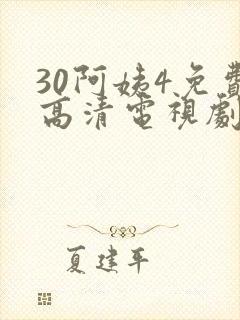 30阿姨4免費
高清電視劇
夏建平